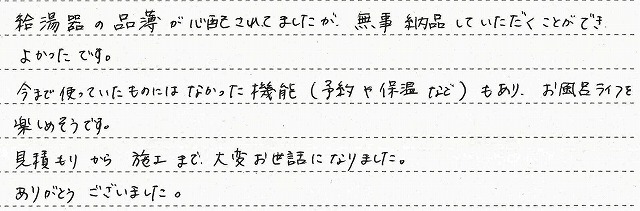 給湯器の品薄が心配されてましたが、無事納品していただくことができ
よかったです。
今まで使っていたものにはなかった機能(予約や保温など)もあり、お風呂ライフを
楽しめそうです。
見積もりから施工まで、大変お世話になりました。
ありがとうございました。